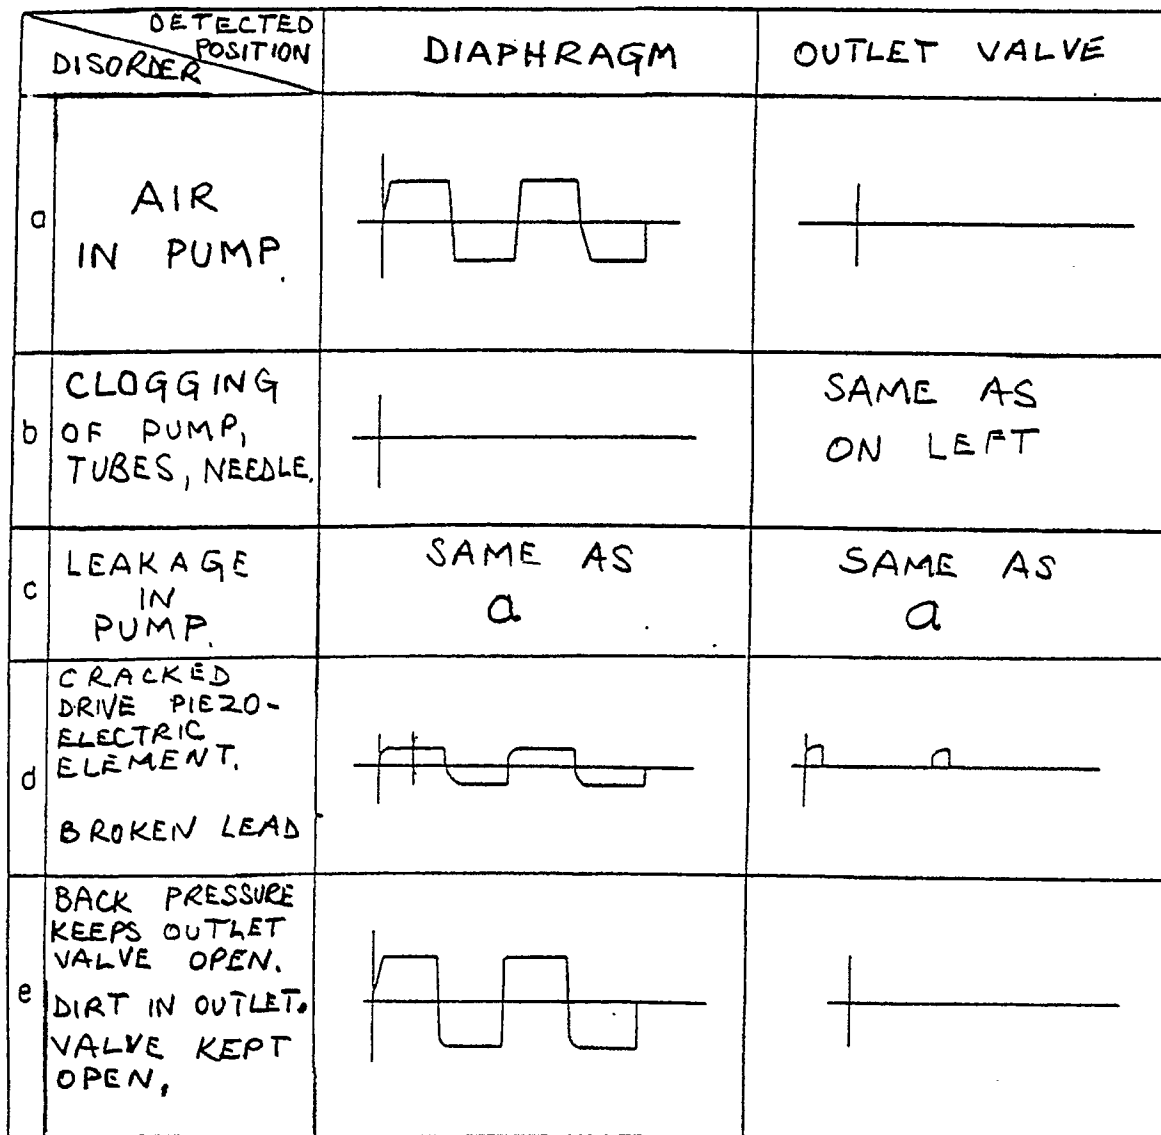 DETECTED
POSITION
DISORDER
DIAPHRAGM
OUTLET VALVE
a
AIR
IN PUMP.
b
CLOGGING
OF PUMP,
TUBES, NEEDLE.
SAME AS
ON LEFT
c
LEAKAGE
IN
PUMP.
SAME AS
a
SAME AS
a
d
CRACKED
DRIVE PIEZO-
ELECTRIC
ELEMENT.
BROKEN LEAD
e
BACK PRESSURE
KEEPS OUTLET
VALVE OPEN.
DIRT IN OUTLET.
VALVE KEPT
OPEN,